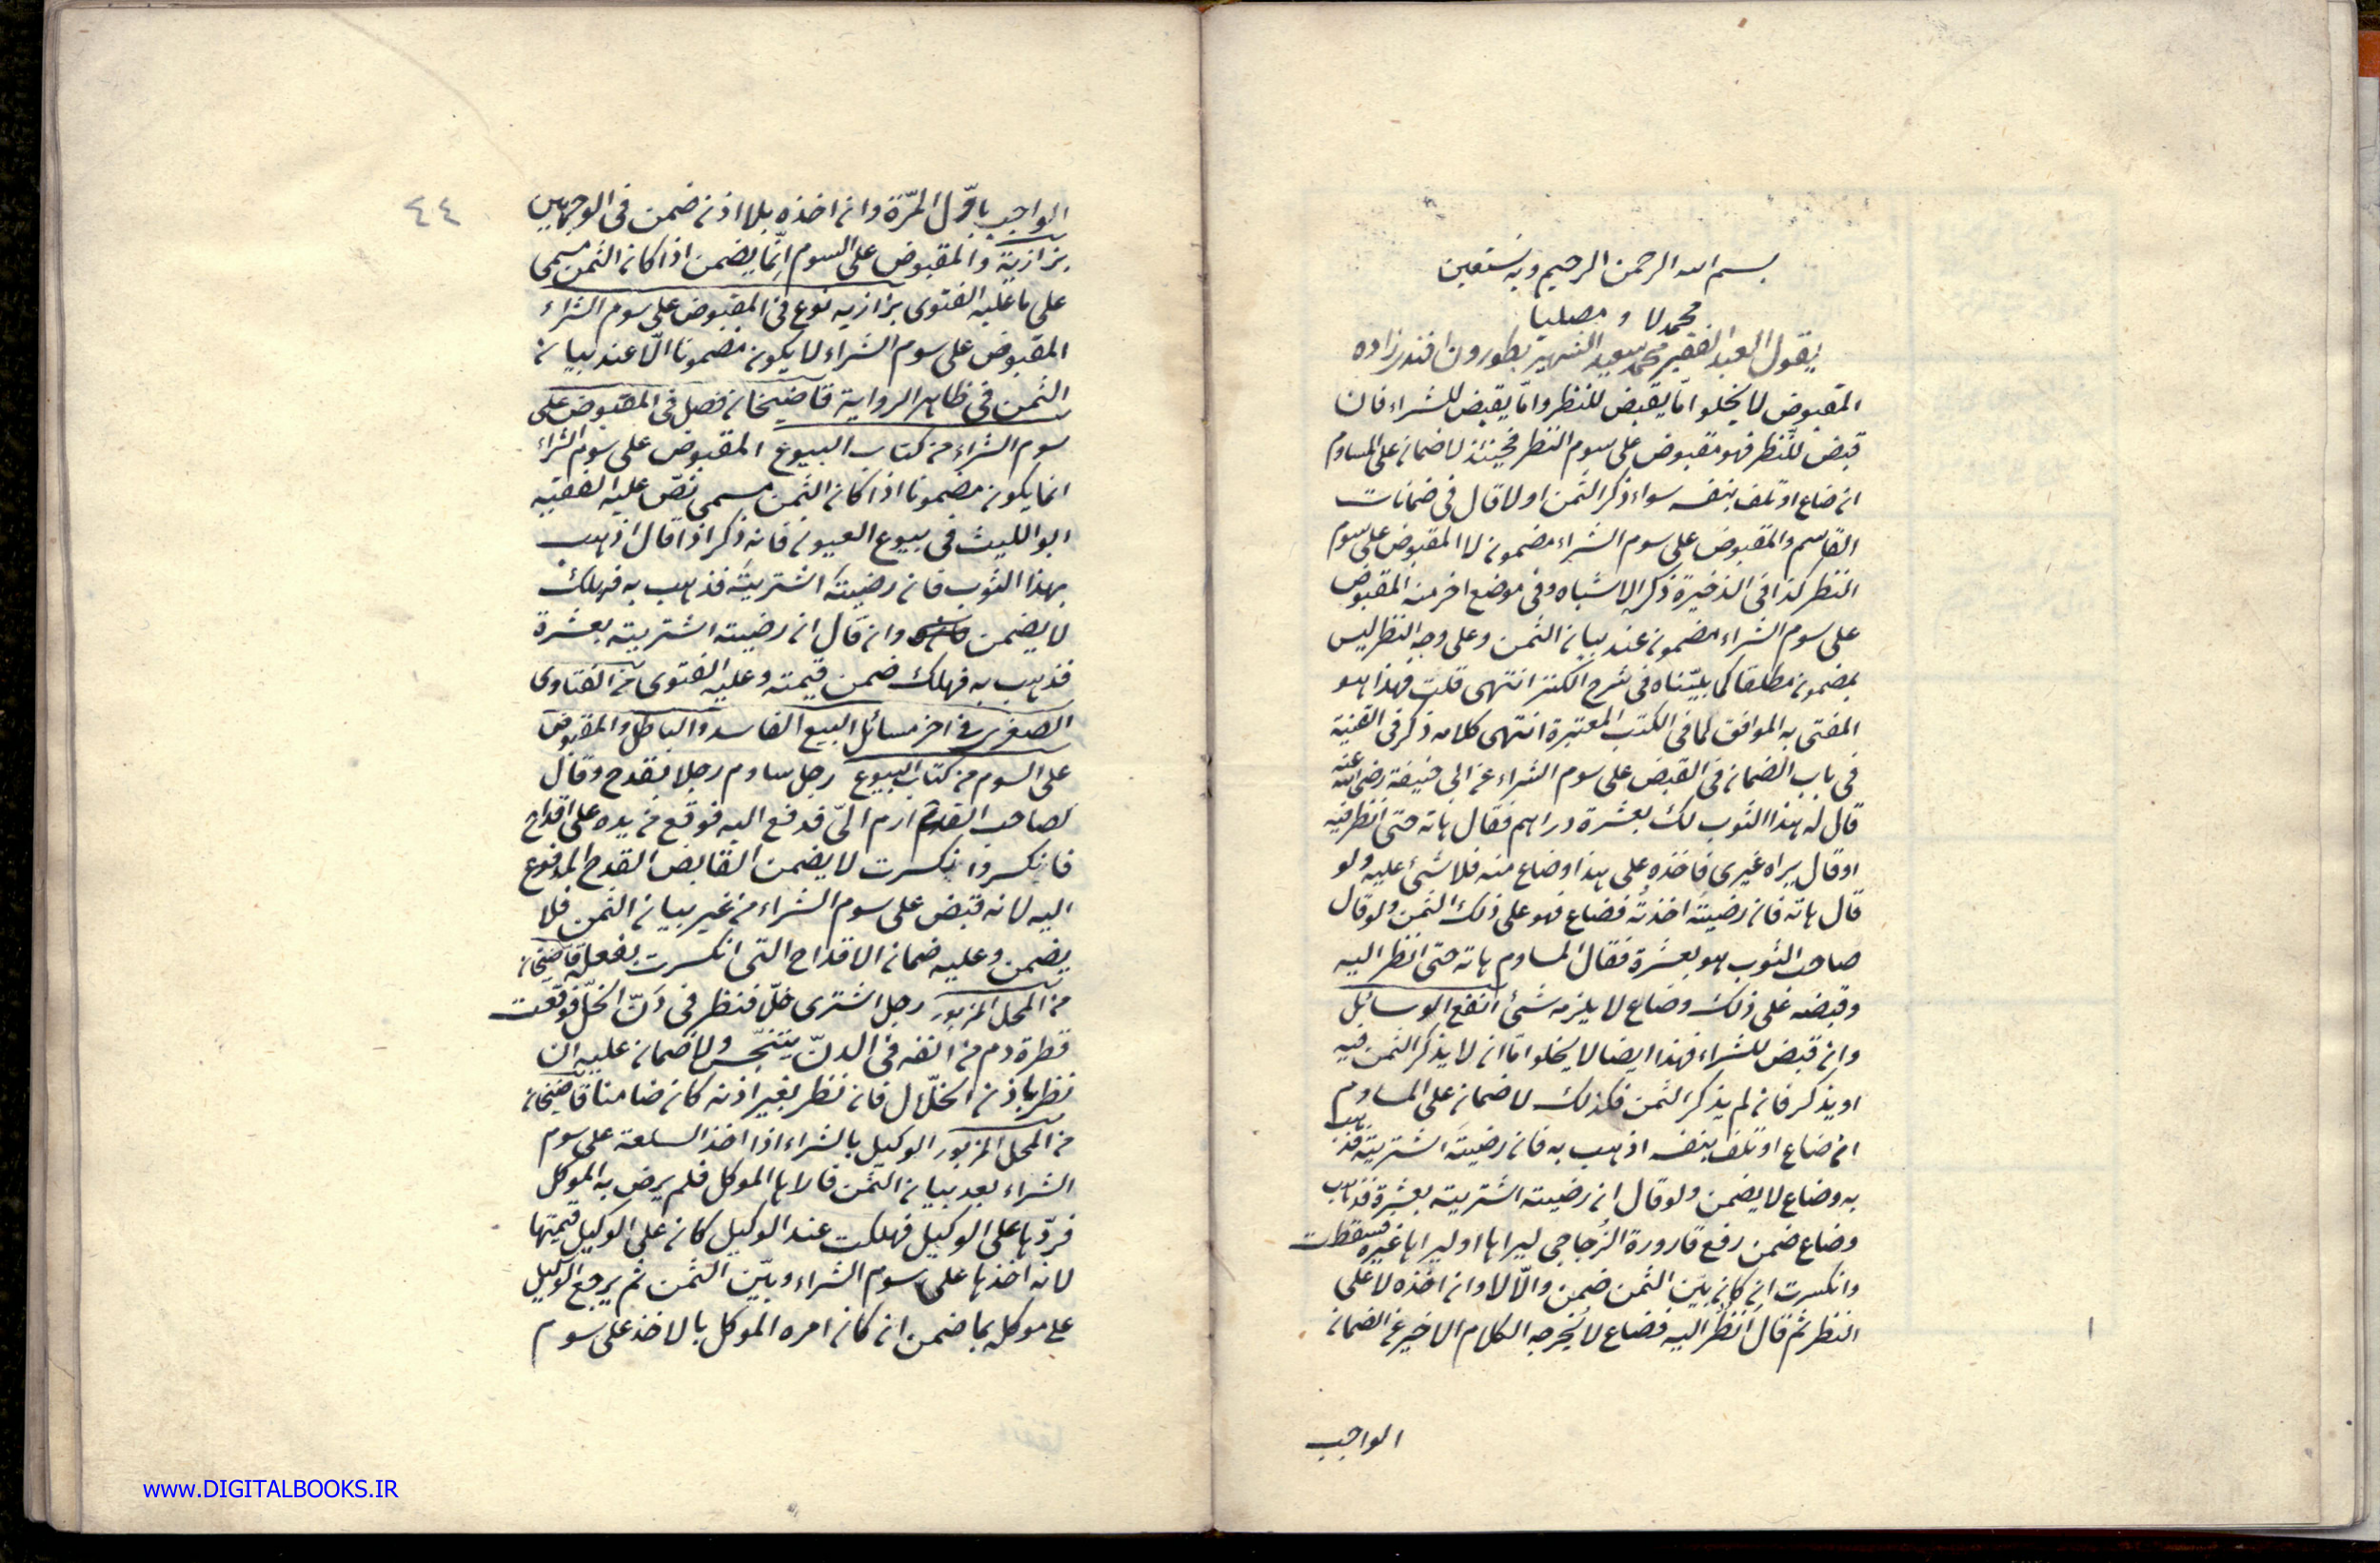 بسم الله الرحمن الرحيم وبه نستعين
محمدلا و مصليا
يقول العبد الفقير محمد سعيد الشهير بطورون افندیزاده
المقبوض لا يخلو امّا يقبض للنظر وامّا يقبض للشراء فان
قبض للنظر فهو مقبوض على سوم النظر فحينئذ لا ضمان على المساوم
ان ضاع او تلف بنفسه سواء ذكر الثمن اولا قال فى ضمانات
القاسم والمقبوض على سوم الشراء مضمون لا المقبوض على سوم
النظر كذا فى الذخيرة ذكر الاشباه وفى موضع اخر منه المقبوض
على سوم الشراء مضمون عند بيان الثمن وعلى وجه النظر ليس
بمضمون مطلقا كما بيّناه فى شرح الكنز انتهى قلت فهذا هو
المفتى به الموافق لما فى الكتب المعتبرة انتهى كلامه ذكر فى القنية
فى باب الضمان فى القبض على سوم الشراء عن ابى حنيفة رضى الله عنه
قال له هذا الثوب لك بعشرة دراهم فقال هاته حتى انظر فيه
او قال يراه غيرى فاخذه على هذا وضاع منه فلا شئ عليه ولو
قال هاته فان رضيتُه اخذتُه فضاع فهو على ذلك الثمن ولو قال
صاحب الثوب هو بعشرة فقال المساوم هاته حتى انظر اليه
وقبضه على ذلك وضاع لا يلزمه شئ انفع الوسائل
وان قبض للشراء فهذا ايضا لا يخلو امّا ان لا يذكر الثمن فيه
او يذكر فان لم يذكر الثمن فكذلك لا ضمان على المساوم
ان ضاع او تلف بنفسه اذهب به فان رضيتَه اشتريتَه فذهب
به وضاع لا يضمن ولو قال ان رضيته اشتريته بعشرة فذهب
وضاع ضمن رفع قارورة الزُجاجى ليراها او ليراها غيره فسقطت
وانكسرت ان كان بيّن الثمن ضمن والّا لا وان اخذه لا على
النظر ثم قال انظُر اليه فضاع لا يُخرجه الكلام الاخير عن الضمان
الواجب
٤٤
الواجب باوّل المرّة وان اخذه بلا اذنه ضمن فى الوجهين
بزازية والمقبوض على السوم انّما يضمن اذا كان الثمن مسمى
على ما عليه الفتوى بزازيه نوع فى المقبوض على سوم الشراء
المقبوض على سوم الشراء لا يكون مضمونا الّا عند بيان
الثمن فى ظاهر الرواية قاضيخان فصل فى المقبوض على
سوم الشراء من كتاب البيوع المقبوض على سوم الشراء
انما يكون مضمونا اذا كان الثمن مسمى نصّ عليه الفقيه
ابو الليث فى بيوع العيون فانه ذكر اذا قال اذهب
بهذا الثوب فان رضيتَه اشتريتَه فذهب به فهلك
لا يضمن وان قال ان رضيته اشتريته بعشرة
فذهب به فهلك ضمن قيمته وعليه الفتوى من الفتاوى
الصغرى فى اخر مسائل البيع الفاسد والباطل والمقبوض
على السوم من كتاب البيوع رجل ساوم رجلا بقدح وقال
لصاحب القدح ارم الىّ فدفع اليه فوقع من يده على اقداح
فانكسر وانكسرت لا يضمن القابض القدح المدفوع
اليه لانه قبض على سوم الشراء من غير بيان الثمن فلا
يضمن وعليه ضمان الاقداح التى انكسرت بفعله قاضيخان
من المحل المزبور رجل اشترى خلّا فنظر فى دَنّ الخلّ فوقعت
قطرة دم من انفه فى الدنّ يتنجّس ولا ضمان عليه ان
نظر باذن الخلّال فان نظر بغير اذنه كان ضامنا قاضيخان
من المحل المزبور الوكيل بالشراء اذا اخذ السلعة على سوم
الشراء بعد بيان الثمن فاراها الموكل فلم يرض به الموكل
فردّها على الوكيل فهلكت عند الوكيل كان على الوكيل قيمتها
لانه اخذها على سوم الشراء وبيّن الثمن ثم يرجع الوكيل
على موكله بما ضمن ان كان امره الموكل بالاخذ على سوم
www.DIGITALBOOKS.IR